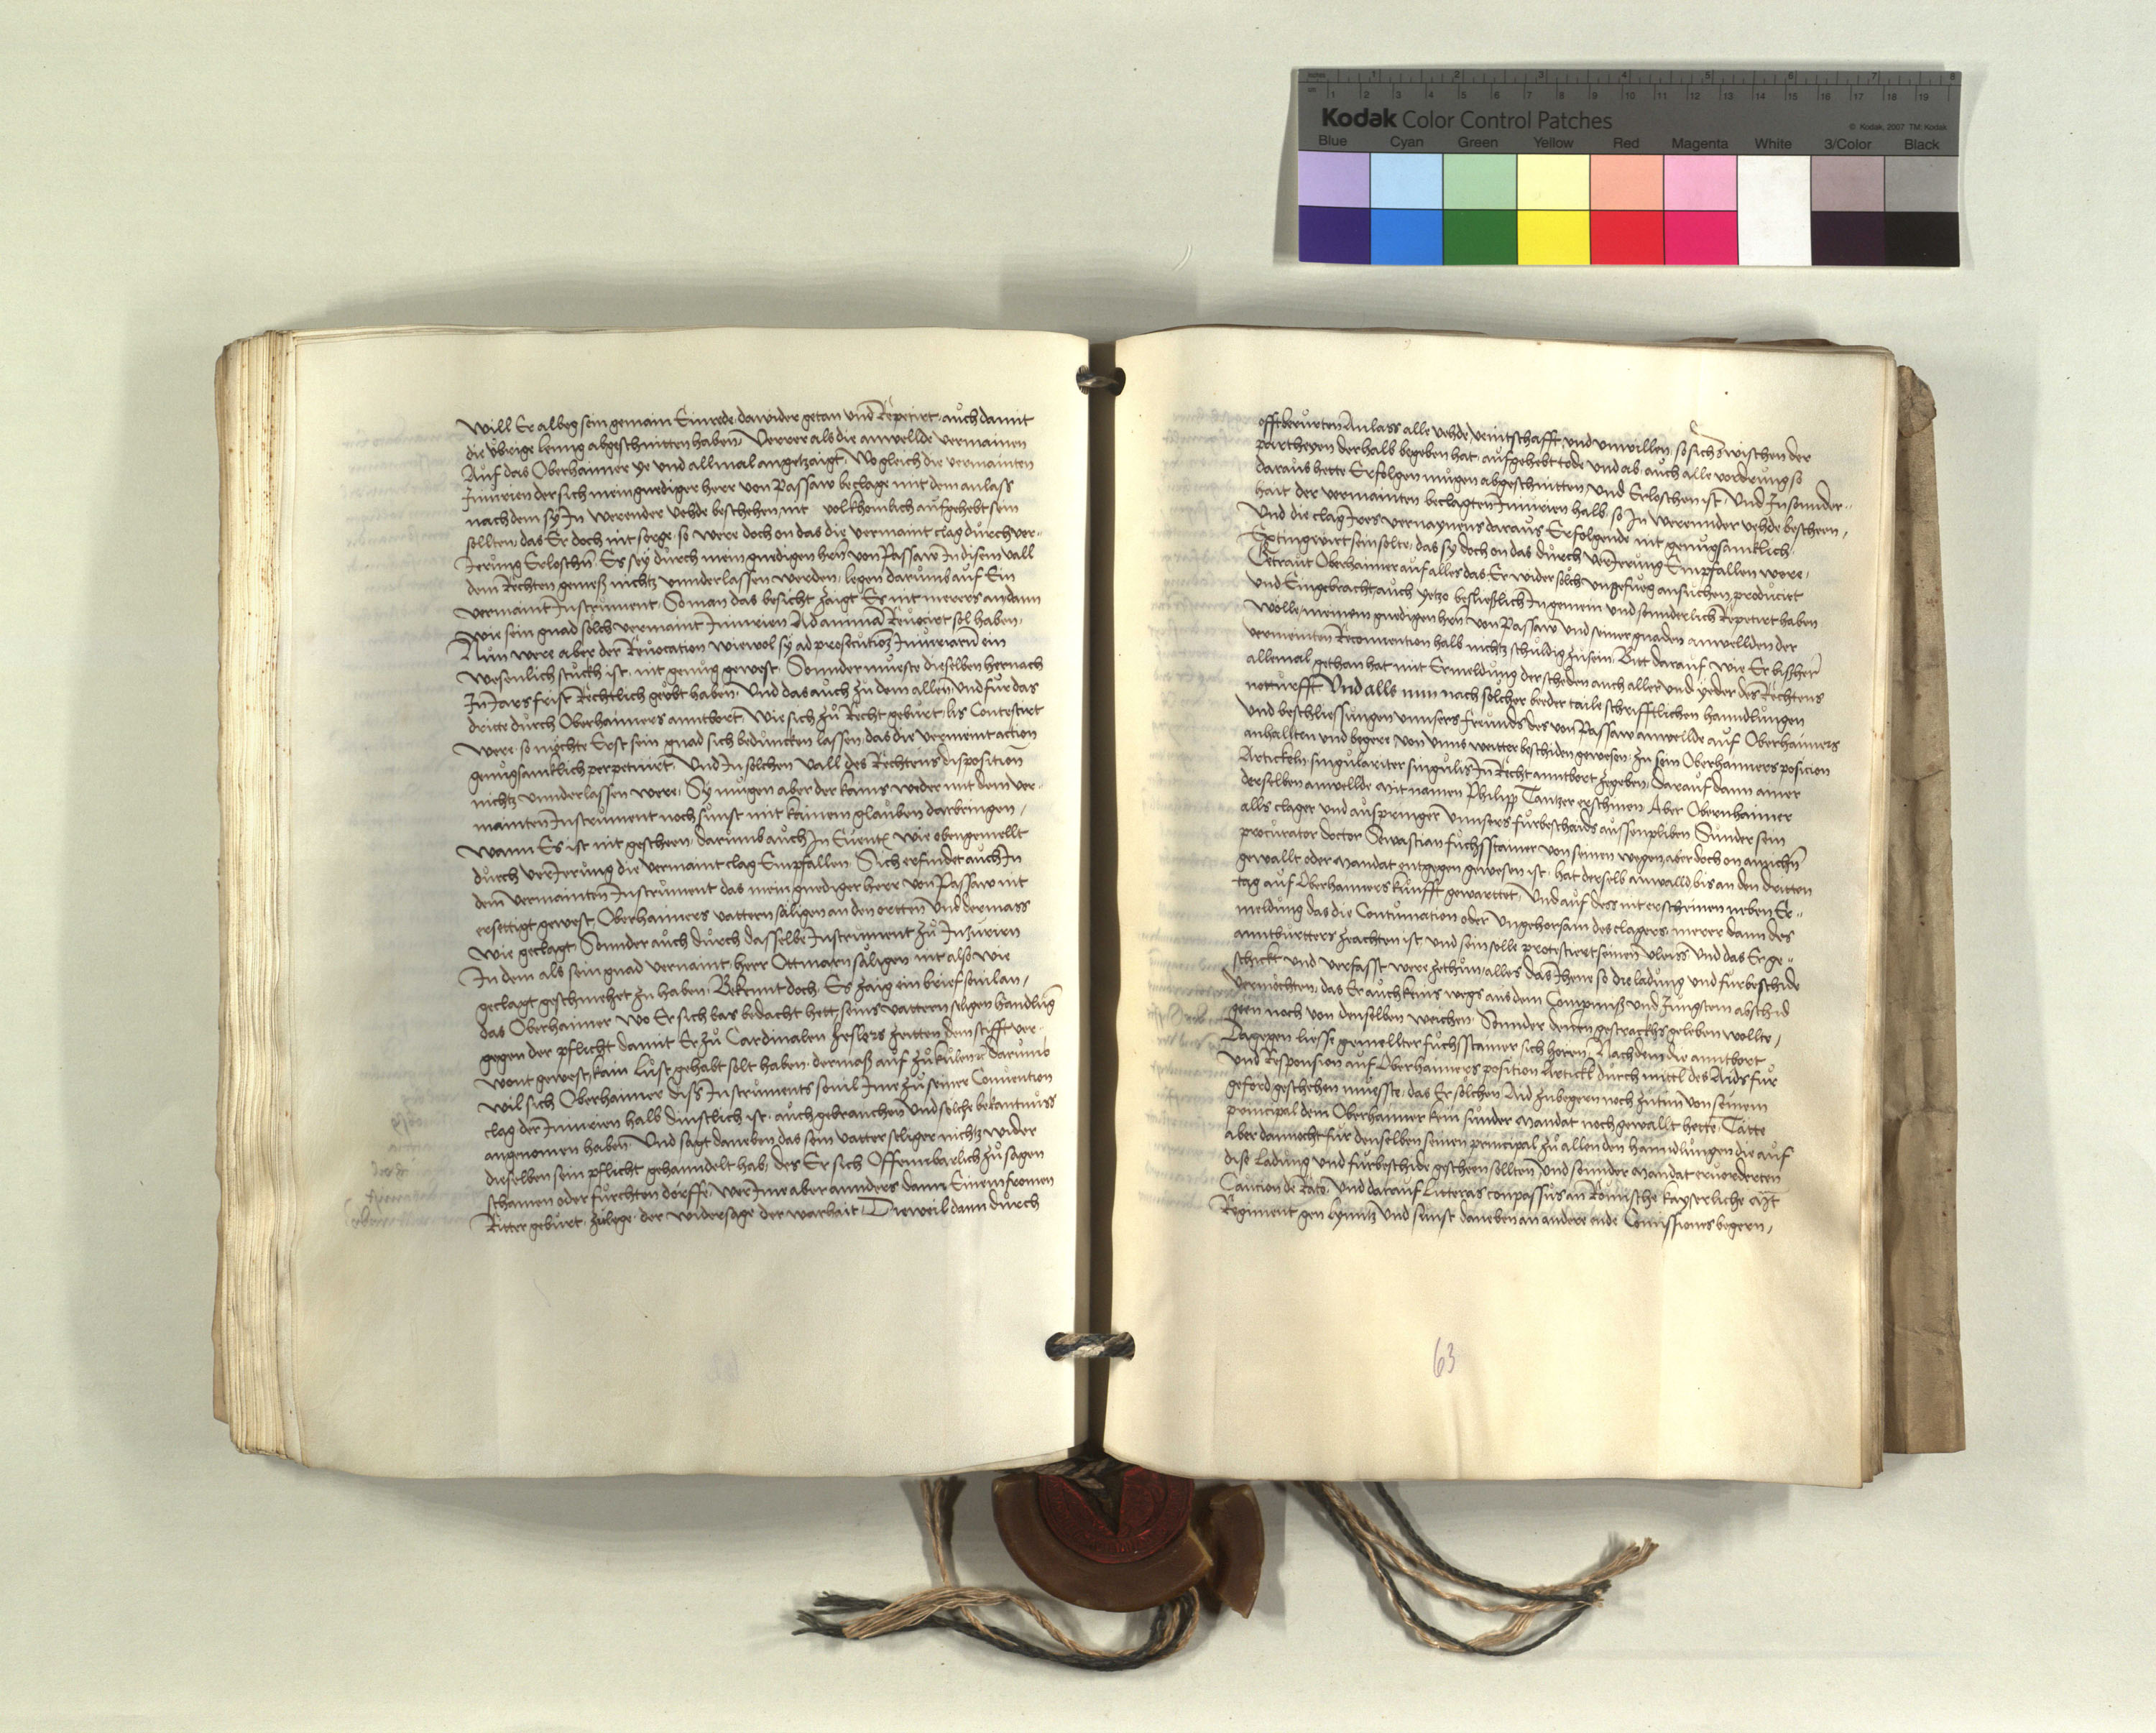 Kodak Color Control Patches
© Kodak, 2007 TM: Kodak
Blue Cyan Green Yellow Red Magenta White 3/Color Black
will Er albeg sein gemain Einrede dawider getan und Repetirt auch damit
die übrige lenng abgeschnitten haben Verrer als die anwellde vermainen
Auf das Oberhaimer ye und allmal angetzaigt Wo gleich die vermainten
Iniurien der sich mein gnediger herr von Passaw beclage mit dem anlass
nach dem sy In werender vehde beschehen nit volkhomlich aufgehebt sein
sollten das Er doch nit sorge so were doch on das die vermaint clag durch ver-
Ierung Erloschn Es sey durch mein gnedigen hrn von Passaw In disem vall
dem Rechten gemeß nichtz unnderlassen werden legen darumb auf Ein
vermaint Instrument So man das besicht zaigt Er nit merers an dann
wie sein gnad solch vermaint Iniurien Ad animu Revocirt sol haben
Nun were aber der Revocation wiewol sy ad prosecution Iniuriaru ein
wesenlich stuckh ist nit genug gewest Sonnder mueste dieselben hernach
In Jars frist Rechtlich geübt haben Und das auch zu dem allen Und für das
dritte durch Oberhaimers anntbort wie sich zu Recht gebürt lis Contestirt
were so möchte Erst sein gnad sich beduncken lassen das die verment action
genugsamklich perpetuirt Und In solchen vall des Rechtens disposition
nichtz unnderlassen were Sy mugen aber der kains weder mit dem ver-
mainten Instrument noch sunst mit kainem glauben darbringen
wann Es ist nit gescheen darumb auch In Event wie obengemellt
durch verIerung die vermaint clag Empfallen Sich erfindet auch In
dem vermainten Instrument das mein gnediger herr von Passaw nit
ersettigt gewest Oberhaimers vattern säligen an den ortten Und dermass
wie geclagt Sonnder auch durch dasselbe Instrument zu Iniurien
In dem als sein gnad vermaint herr Ottmarn säligen nit also wie
geclagt geschmehet zu haben Bekennt doch Es zaig ein brief sovil an
das Oberhaimer wo Er sich bas bedacht hett seins vattern seligen handlung
gegen der pflicht damit Er zu Cardinalen Zeslers zeitten dem stifft ver-
wont gewest kain lust gehabt solt haben dermaß auf zu darumb
wil sich Oberhaimer diss Instruments sovil Ime zu seiner Convention
clag der Iniurien halb dinstlich ist auch gebrauchen Und solche bekantnuss
angenomen haben Und sagt daneben das sein vatter seliger nichtz wider
dieselben sein pflicht gehanndelt hab des Er sich Offennbarlich zu sagen
schamen oder fürchten dörffe wer Ime aber annders dann Einem fromen
Ritter gebürt zulege der widersage der warhait Dieweil dann durch
offtberürten Anlass alle vehde veintschafft und unwillen so sich zwischen der
partheyen derhalb begeben hat aufgehebt tode und ab auch alle vordrung so
daraus hette Erfolgen mügen abgeschnitten Und Erloschen ist Und In sonnder-
hait der vermainten beclagten Iniurien halb so In werennder vehde bescheen
Und die clag Ires vermaynens daraus Erfolgende nit genugsamklich
Extingwirt sein solte das sy doch on das durch verIerung Empfallen were
Getraut Oberhaimer auf alles das Er wider solch ungefueg ansuchen producirt
und Eingebracht auch yetzo besließlich In gemein und sonnderlich Repetirt haben
wölle meinem gnedigen hrn von Passaw und seiner gnaden anwellden der
vermeinten Reconvention halb nichtz schuldig zu sein Bitt darauf wie Er bisher
allemal gethan hat mit Ermeldung der scheden auch aller und yeder des Rechtens
notturfft Und alls nun nach solcher beeder taile schrifftlichen hanndlungen
und beschliessungen unnsers freunds des von Passaw anwellde auf Oberhaimers
anhallten und begere von unns weitter beschiden gewesen zu sein Oberhaimers posicion
Artickeln singulariter singulis In Recht anntbort zegeben Darauf dann ainer
derselben anwellde mit namen Philipp Tantzer erschinen Aber Obernhaimer
alls clager und auspringer unnsers fürbeschaids aussenpliben Sunder sein
procurator doctor Sewastian füchsstainer von seinen wegen aber doch on ainichn
gewallt oder Mandat entgegen gewesen ist hat derselb anwalld bis an den dritten
tag auf Oberhaimers kunfft gewarttet Und auf dess nit erscheinen neben Er-
meldung das die Contumation oder ungehorsam des clagers merer dann des
anntburtters zeachten ist und sein solle protestiert seinen vleiss Und das Er ge-
schickt und verfasst were zethun alles das Ihene so die ladung und fürbeschide
vermöchten das Er auch keins wegs aus dem Compromiß und Jungstem abschid
geen noch von denselben weichen Sonnder denen gestrackhs geleben wollte
Dagegen liesse gemellter füchsstainer sich hören Nachdem die anntbort
und Responsion auf Oberhaimers position Artickl durch mittl des Aids für
geford geschehen müesste das Er solchen Aid zubegern noch zutun von seinem
principal dem Oberhaimer kein sunder Mandat noch gewallt hette Tätte
aber dannocht für denselben seinen principal zu allen den hanndlungen die auf
dise Ladung Und fürbeschide gescheen sollten Und sonnder Mandat ervorderten
Caution de Rato Und darauf Litteras conpassus an Römische kayserliche
Regiment gen Lynntz Und sunst daneben an andere ende Comissiones begern
63